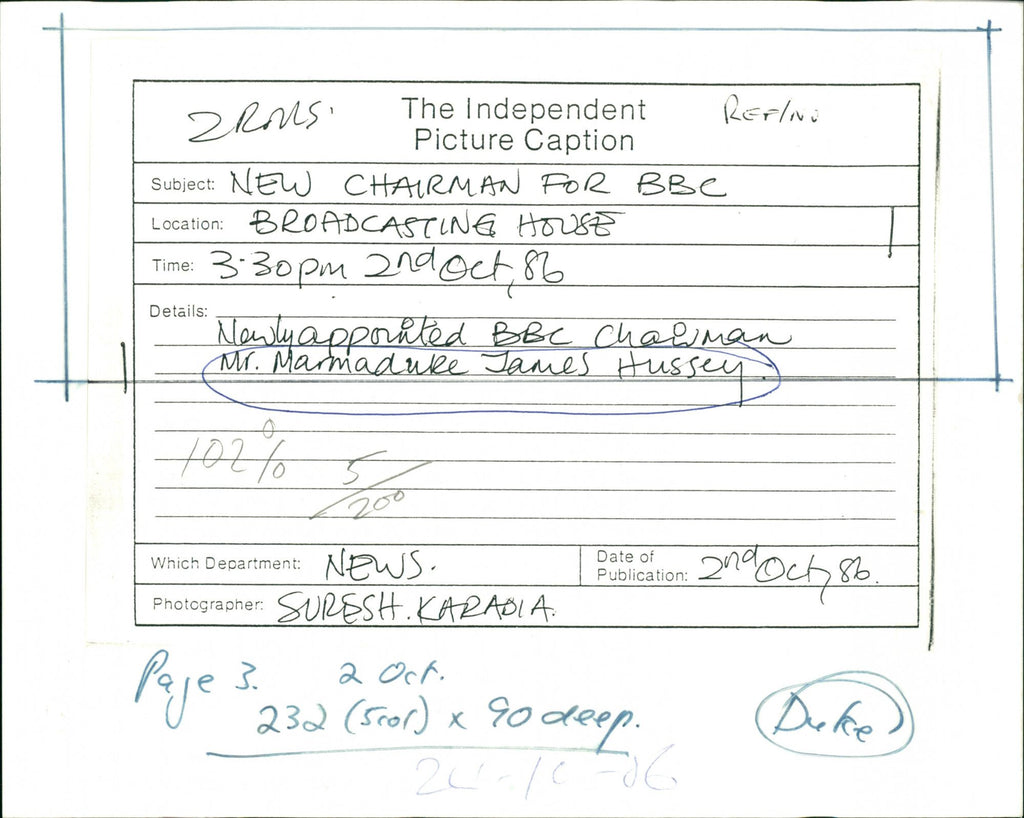 2 ROLLS. The Independent REF/NO
Picture Caption
Subject: NEW CHAIRMAN FOR BBC
Location: BROADCASTING HOUSE
Time: 3·30pm 2nd Oct, 86
Details:
Newly appointed BBC Chairman
Mr. Marmaduke James Hussey.
102%
5/200
Which Department: NEWS. Date of Publication: 2nd Oct, 86.
Photographer: SURESH. KARADIA.
Page 3. 2 Oct.
232 (5col) x 90 deep. Duke